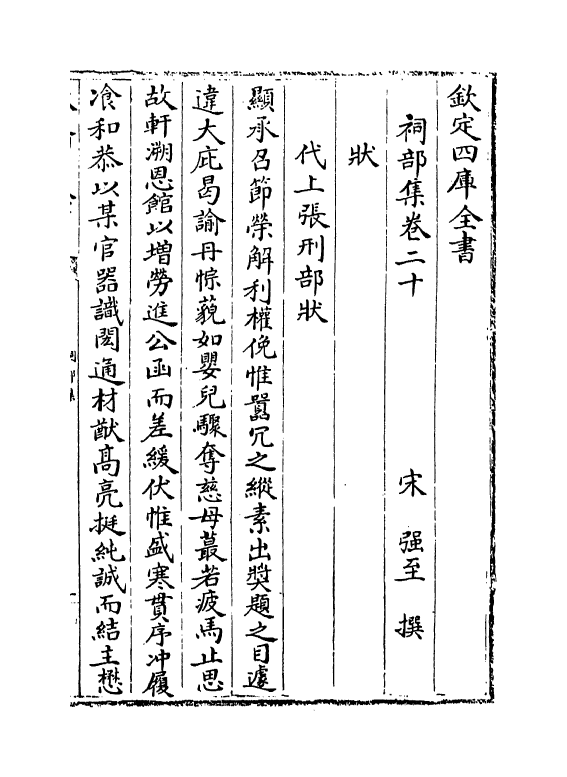 欽定四庫全書
祠部集卷二十
宋 强至 撰
狀
代上張刑部狀
顯承召節榮解利權俛惟囂冗之縱素出奬題之目遽
違大庇曷諭丹悰藐如嬰兒驟奪慈母蕞若疲馬止思
故軒溯恩館以增勞進公函而差緩伏惟盛寒貫序冲履
飡和恭以某官器識閎通材猷髙亮挺純誠而結主懋